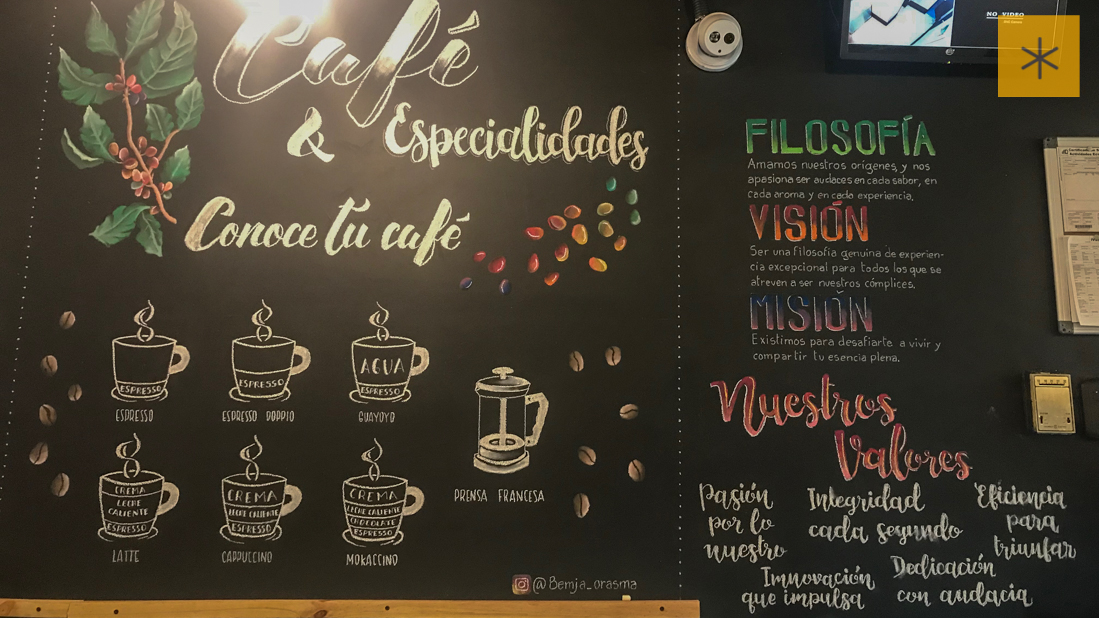 Café
& Especialidades
Conoce tú café
ESPRESSO
ESPRESSO
ESPRESSO
ESPRESSO DOPPIO
AGUA
ESPRESSO
GUAYOYO
CREMA
LECHE
CALIENTE
ESPRESSO
LATTE
CREMA
LECHE CALIENTE
ESPRESSO
CAPPUCCINO
CREMA
LECHE CALIENTE
CHOCOLATE
ESPRESSO
MOKACCINO
PRENSA FRANCESA
@Bemja_orasma
NO VIDEO
FILOSOFÍA
Amamos nuestros orígenes, y nos
apasiona ser audaces en cada sabor, en
cada aroma y en cada experiencia.
VISIÓN
Ser una filosofía genuina de experien-
cia excepcional para todos los que se
atreven a ser nuestros cómplices.
MISIÓN
Existimos para desafiarte a vivir y
compartir tu esencia plena.
Nuestros
Valores
Pasión
por lo
nuestro
Integridad
cada segundo
Eficiencia
para
triunfar
Innovación
que impulsa
Dedicación
con audacia